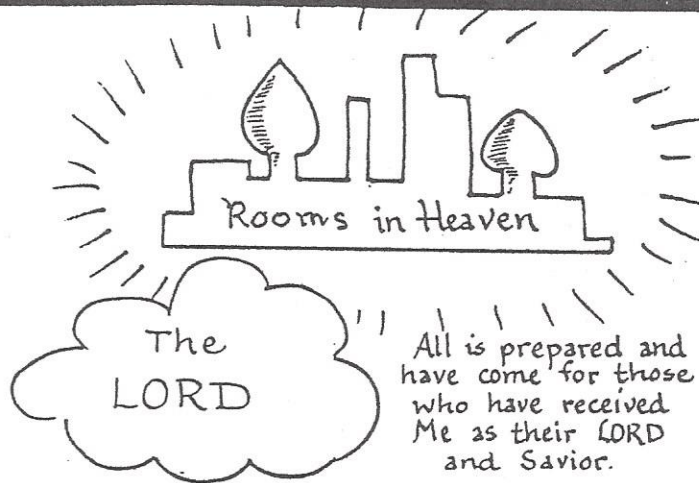 Rooms in Heaven
The
LORD
All is prepared and
have come for those
who have received
Me as their LORD
and Savior.